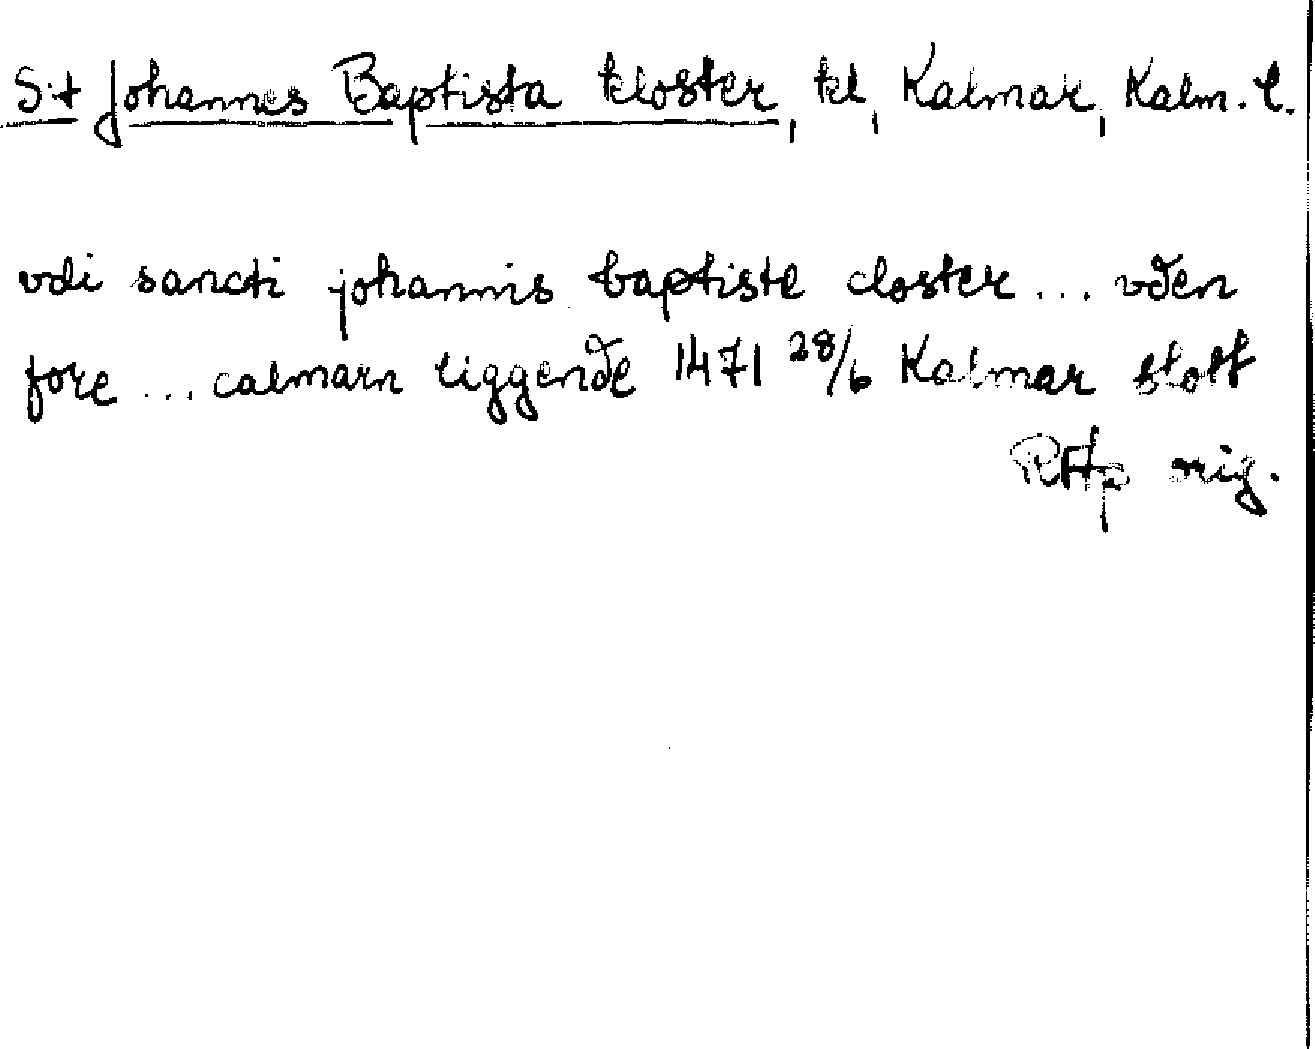 S:t Johannes Baptista kloster, kl, Kalmar, Kalm. l.
vdi sancti johannis baptiste closter ... vđen
fore ... calmarn liggenđe 1471 28/6 Kalmar slott
RAp orig.